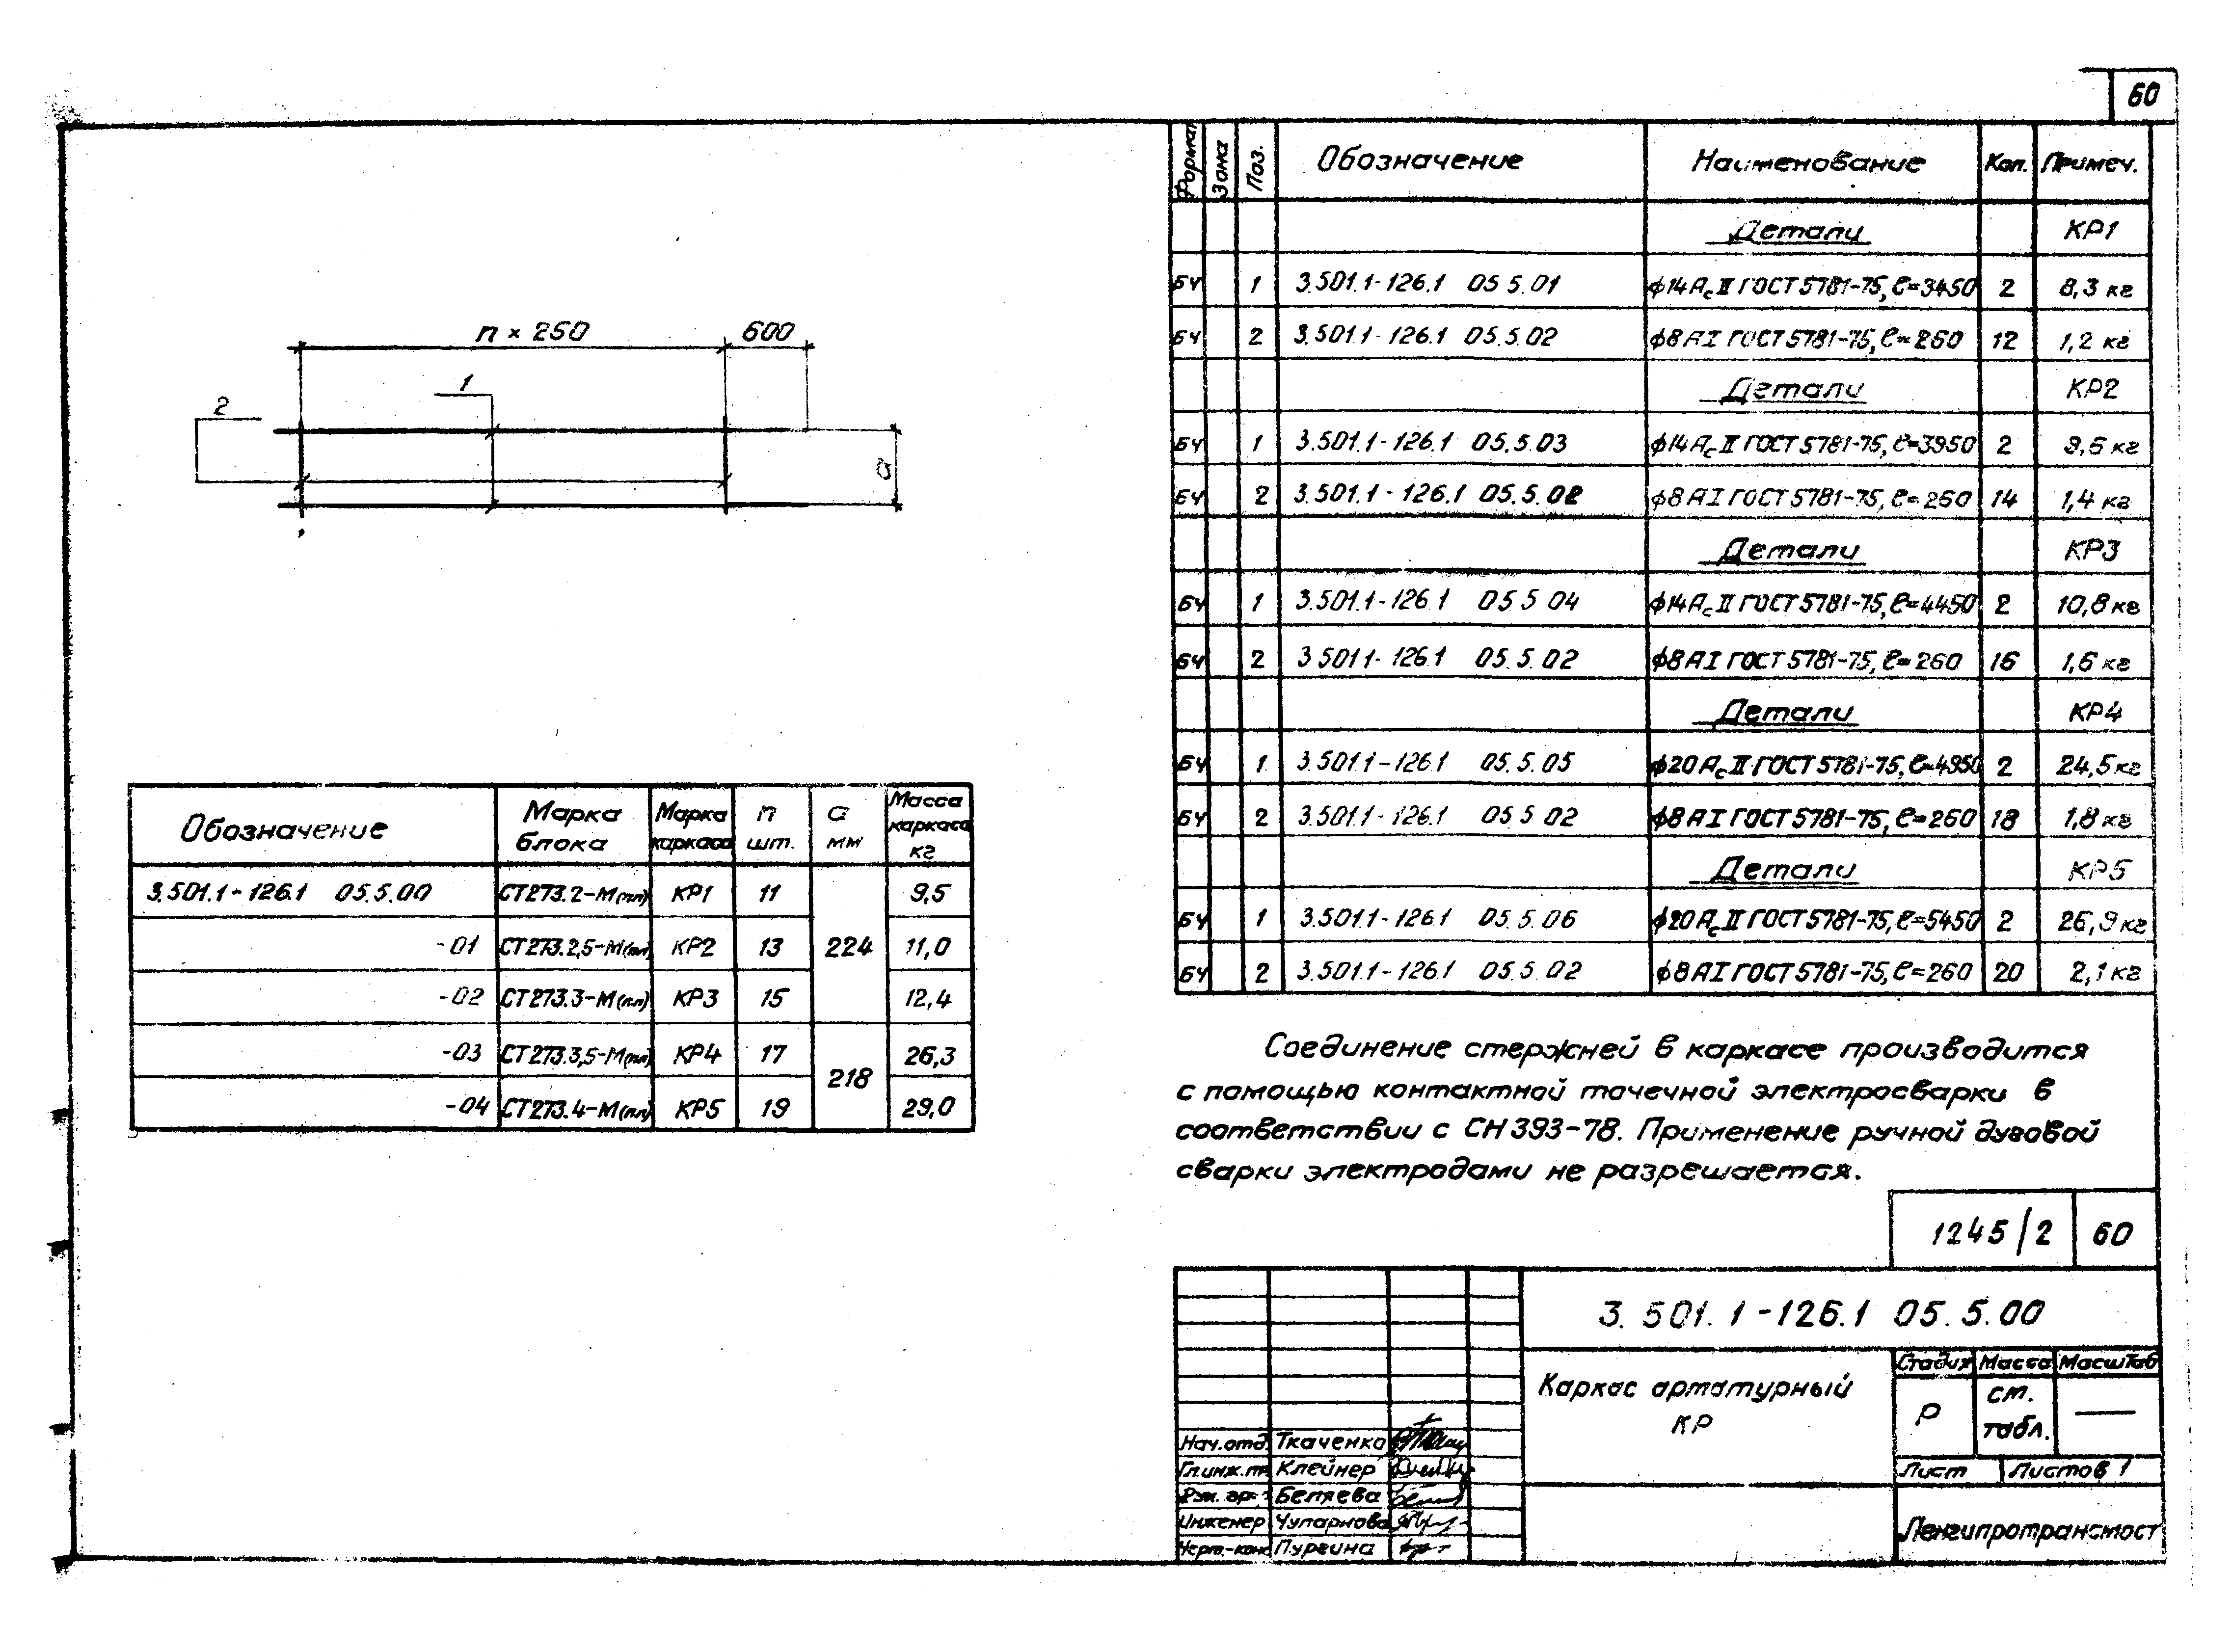 60
n × 250
600
1
2
a
Обозначение
Марка блока
Марка каркаса
n шт.
а мм
Масса каркаса кг
3.501.1-126.1 05.5.00 СТ273.2-М(пл) КР1 11 224 9,5
-01 СТ273.2,5-М(пл) КР2 13 11,0
-02 СТ273.3-М(пл) КР3 15 12,4
-03 СТ273.3,5-М(пл) КР4 17 218 26,3
-04 СТ273.4-М(пл) КР5 19 29,0
Формат Зона Поз. Обозначение Наименование Кол. Примеч.
Детали КР1
БЧ 1 3.501.1-126.1 05 5.01 ф14АсII ГОСТ 5781-75, ℓ=3450 2 8,3 кг
БЧ 2 3.501.1-126.1 05.5.02 ф8АI ГОСТ 5781-75, ℓ=260 12 1,2 кг
Детали КР2
БЧ 1 3.501.1-126.1 05.5.03 ф14АсII ГОСТ 5781-75, ℓ=3950 2 9,6 кг
БЧ 2 3.501.1-126.1 05.5.02 ф8АI ГОСТ 5781-75, ℓ=260 14 1,4 кг
Детали КР3
БЧ 1 3.501.1-126.1 05 5 04 ф14АсII ГОСТ 5781-75, ℓ=4450 2 10,8 кг
БЧ 2 3 501.1-126.1 05.5.02 ф8АI ГОСТ 5781-75, ℓ=260 16 1,6 кг
Детали КР4
БЧ 1 3.501.1-126.1 05.5.05 ф20АсII ГОСТ 5781-75, ℓ=4950 2 24,5 кг
БЧ 2 3.501.1-126.1 05 5 02 ф8АI ГОСТ 5781-75, ℓ=260 18 1,8 кг
Детали КР5
БЧ 1 3.501.1-126.1 05.5.06 ф20АсII ГОСТ 5781-75, ℓ=5450 2 26,9 кг
БЧ 2 3.501.1-126.1 05.5.02 ф8АI ГОСТ 5781-75, ℓ=260 20 2,1 кг
Соединение стержней в каркасе производится
с помощью контактной точечной электросварки в
соответствии с СН 393-78. Применение ручной дуговой
сварки электродами не разрешается.
1245/2 60
3.501.1-126.1 05.5.00
Каркас арматурный
КР
Стадия Масса Масштаб
Р см. табл. —
Лист Листов 1
Ленгипротрансмост
Нач.отд. Ткаченко
Гл.инж.пр. Клейнер
Рук. гр. Беляева
Инженер Чупарнова
Черт.-конс Пургина